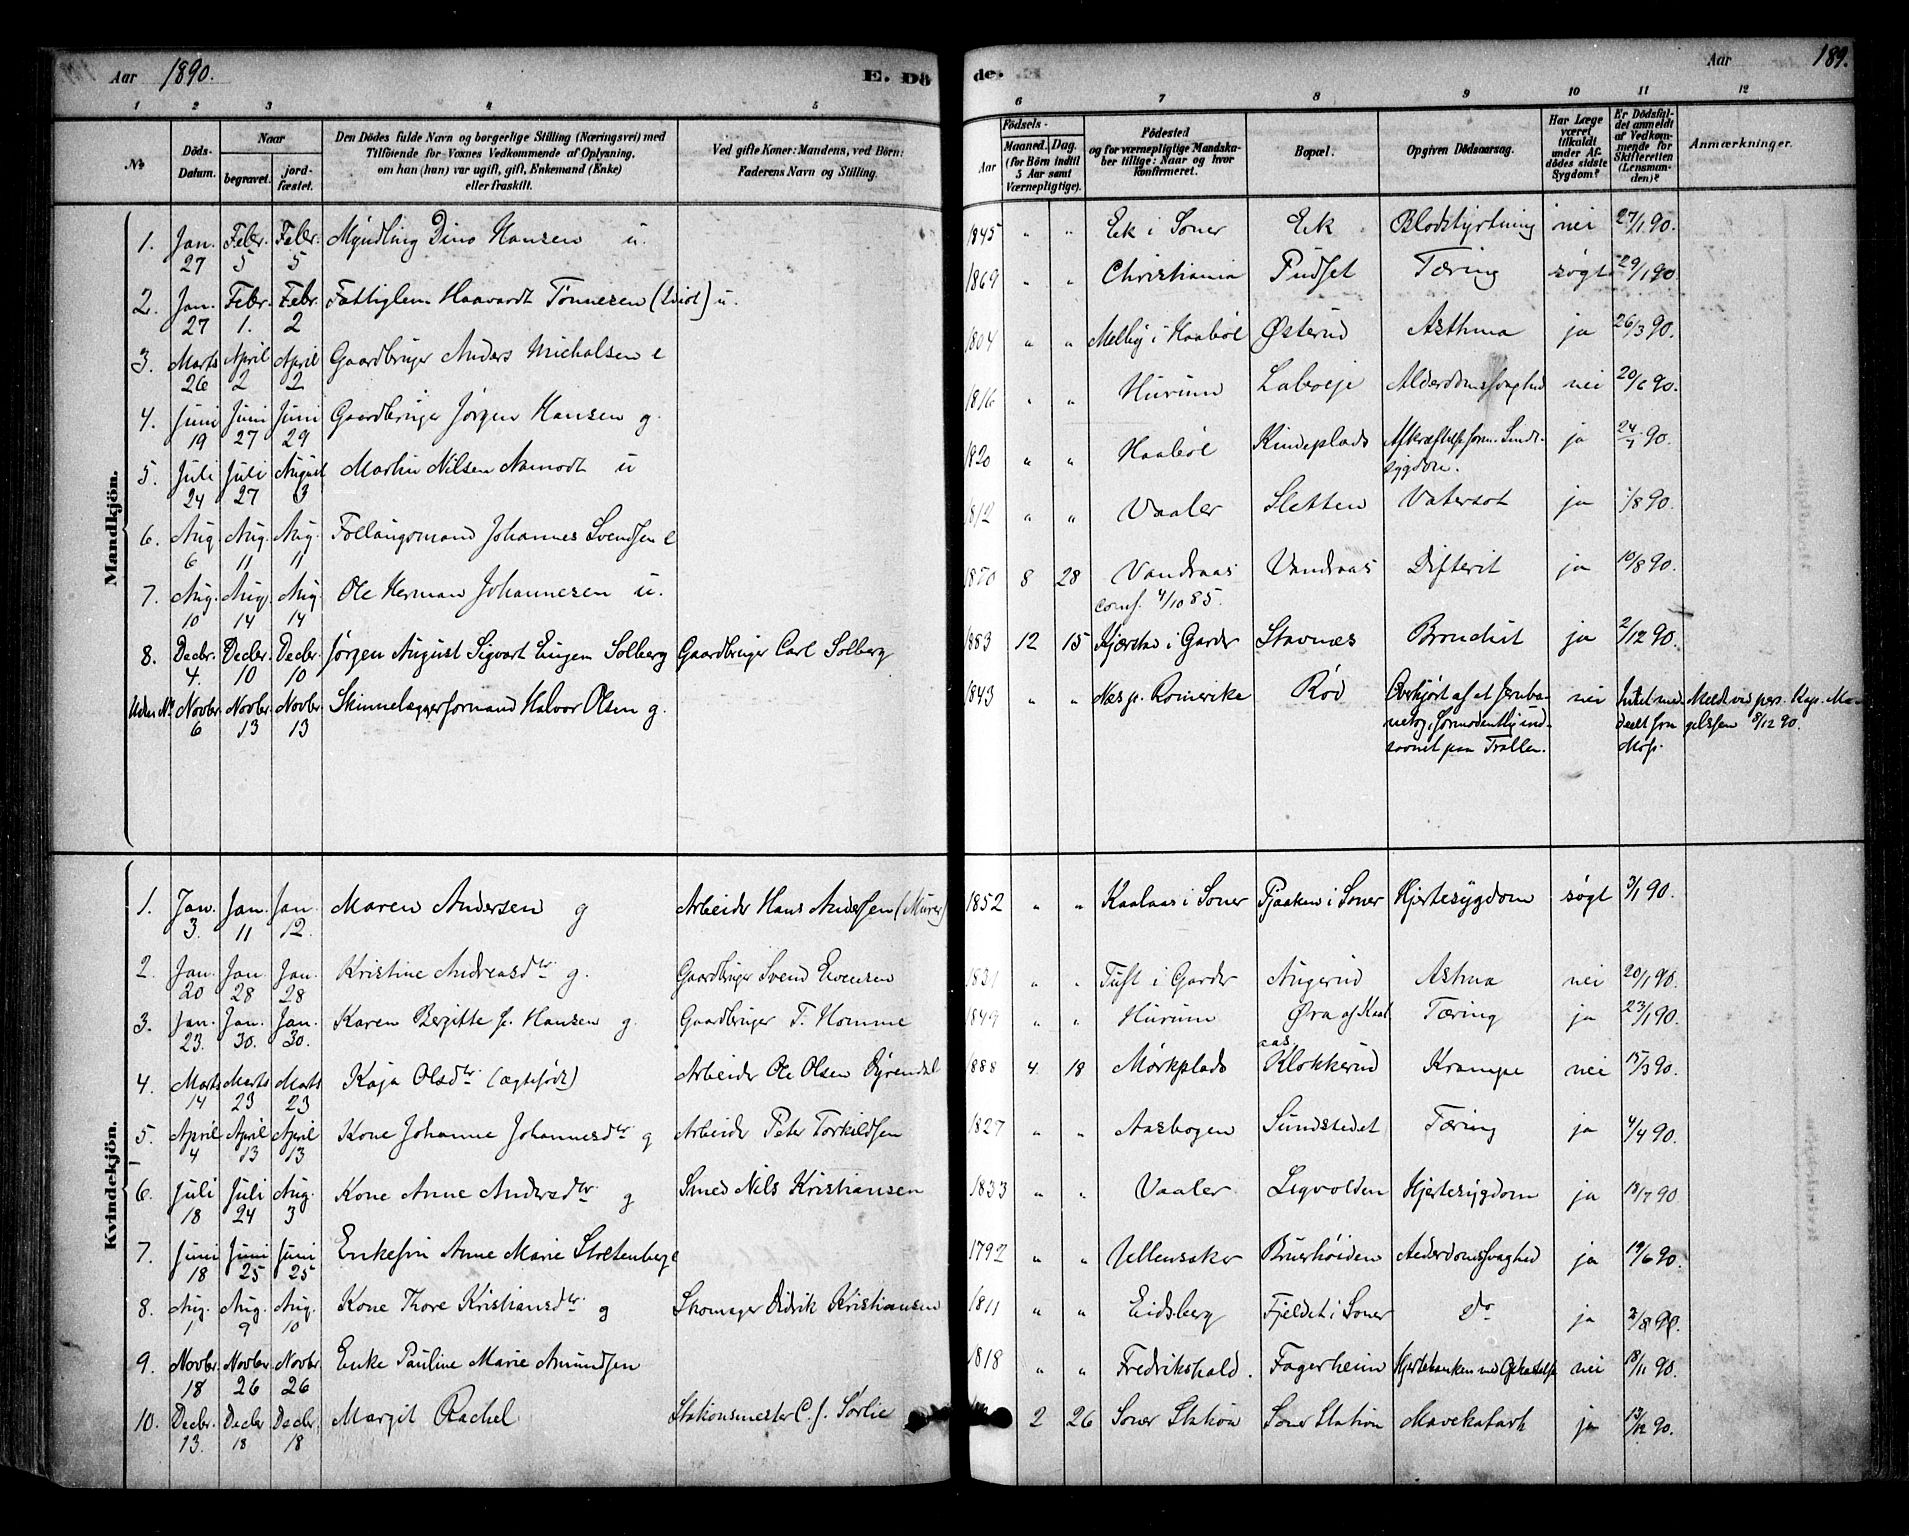 Aar 1890. E. Dö
1 2 3 4 5
No
Döds-Datum.
Naar
begravet. jordfæstet.
Den Dödes fulde Navn og borgerlige Stilling (Næringsvei) med
Tilföiende for Voxnes Vedkommende af Oplysning,
om han (hun) var ugift, gift, Enkemand (Enke)
eller fraskilt.
Ved gifte Koner: Mandens, ved Börn:
Faderens Navn og Stilling.
de. Aar 189.
6 7 8 9 10 11 12
Födsels-
Aar
Maaned. (for Börn indtil 5 Aar samt Værnepligtige).
Dag.
Födested
og for værnepligtige Mandskaber tillige: Naar og hvor konfirmeret.
Bopæl.
Opgiven Dödsaarsag.
Har Læge været tilkaldt under Afdödes sidste Sygdom?
Er Dödsfaldet anmeldt af Vedkommende for Skifteretten (Lensmanden)?
Anmærkninger.
Mandkjön.
1. Jan. 27 Febr. 5 Febr. 5 Myndling Dino Hansen u. 1845 " " Ek i Soner Ek Blodstyrtning nei 27/1 90.
2. Jan. 27 Febr. 1. Febr. 2 Fattiglem Haavardt Tönnesen (Idiot) u. 1869 " " Christiania Pudset Tæring søgt 29/1 90.
3. Marts 26 April 2 April 2 Gaardbruger Anders Michalsen e 1804 " " Melby i Haabøl Østerud Asthma ja 26/3 90.
4. Juni 19 Juni 27 Juni 29 Gaardbruger Jörgen Hansen g. 1816 " " Hurum Labæje Alderdomssvaghed nei 20/6 90.
5. Juli 24 Juli 27 August 3 Martin Nilsen Aamodt u 1820 " " Haabøl Kindeplads sygdom. ja 24/7 90.
6. Aug 6 Aug. 11 Aug. 11 Johannes Svendsen e 1812 " " Vaaler Sletten Vatersot ja 7/8 90.
7. Aug. 10 Aug. 14 Aug. 14 Ole Herman Johannesen u. 1870 8 28 Vandraas Vandraas Difterit ja 10/8 90.
conf. 4/10 85.
8. Decbr. 4. Decbr. 10 Decbr. 10 Jørgen August Sigvart Eugen Solberg Gaardbruger Carl Solberg 1883 12 15 i Garder Stavnes ja 2/12 90.
Uden No Novbr. 6 Novbr. 13 Novbr. 13 Skinnelæggerformand Halvor Olsen g. 1843 " " Næs p. Romerike Röd Overkjørt af et Jernba-
netog, formodentlig ind-
sovnet paa Trallen. nei Intet med-
deelt fra
Meldt ved pers. Kap. Ma-
gelssen 8/12 90.
Kvindekjön.
1. Jan. 3. Jan. 11 Jan. 12. Maren Andersen g Arbeider Hans Andersen (Murer) 1852 " " Kaalaas i Soner i Soner Hjertesygdom søgt 3/1 90.
2. Jan. 20 Jan. 28 Jan. 28 Kristine Andreasdtr g. Gaardbruger Svend Evensen 1831 " " Tuft i Garder Augerud Asthma nei 20/1 90.
3. Jan. 23. Jan. 30. Jan. 30. Karen Bergitte f. Hansen g. Gaardbruger T. Homme 1849 " " Hurum Øra af Kaal-
aas Tæring ja 23/1 90.
4. Marts 14 Marts 23 Marts 23 Kaja Olsdtr (ægtefødt) Arbeider Ole Olsen Dyrendal 1888 4 18 Mørkplads Klokkerud Krampe nei 15/3 90.
5. April 4 April 13 April 13 Kone Johanne Johannesdtr g Arbeider Peter Torkildsen 1827 " " Aasbogen Sundstedet Tæring ja 4/4 90.
6. Juli 18 Juli 24 Aug. 3 Kone Anne Andersdtr g Smed Nils Kristiansen 1833 " " Vaaler Ligvolden Hjertesygdom ja 18/7 90
7. Juni 18 Juni 25 Juni 25 Enkefru Anne Marie Stoltenberg e 1792 " " Ullensaker Bruerhøiden Alderdomssvaghed ja 19/6 90.
8. Aug. 1 Aug. 9 Aug. 10 Kone Thore Kristiansdtr g Skomager Didrik Kristiansen 1811 " " Eidsberg Fjeldet i Soner do ja 2/8 90.
9. Novbr. 18 Novbr. 26 Novbr. 26 Enke Pauline Marie Amundsen 1818 " " Fredrikshald. Fagerheim nei 18/11 90.
10. Decbr. 13. Decbr 18 Decbr. 18 Margit Rachel Stationsmester C. J. Sørlie 2 26 Soner Station Soner Station Mavekatarh ja 13/12 90.